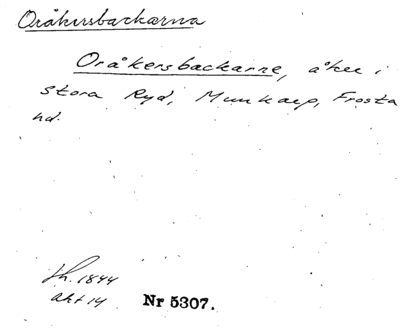 Oråkersbackarna
Oråkersbackarne, åker i
Stora Ryd, Munkarp, Frosta
hd.
Sk. 1844
akt 14 Nr 5307.